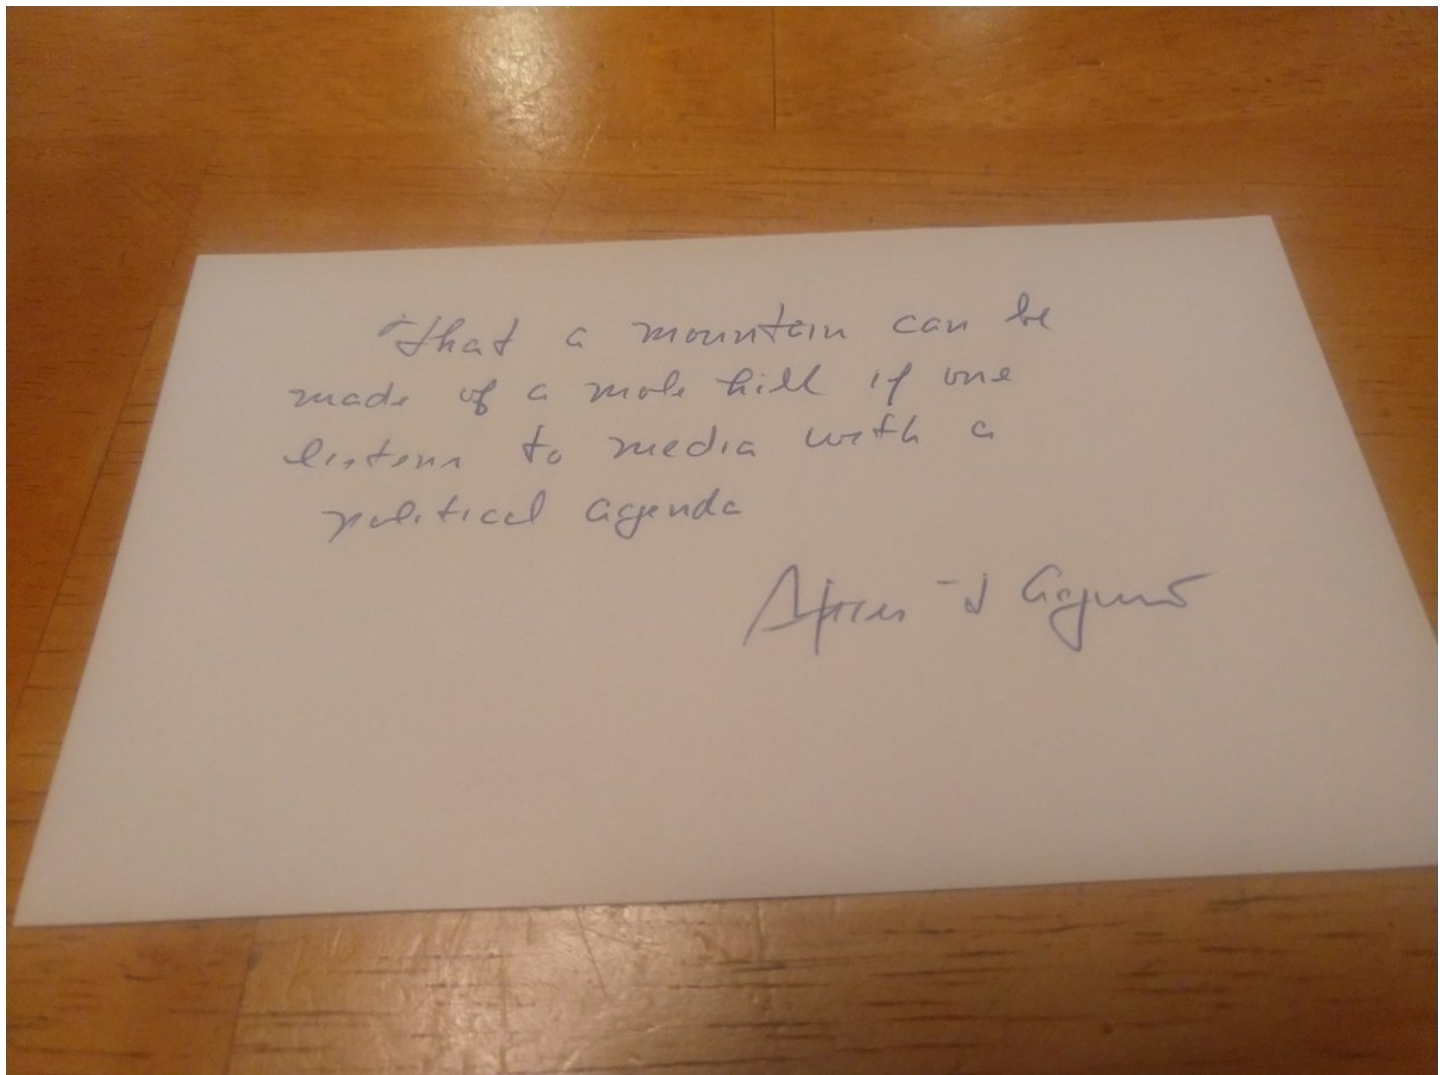 That a mountain can be
made of a mole hill if one
listens to media with a
political agenda